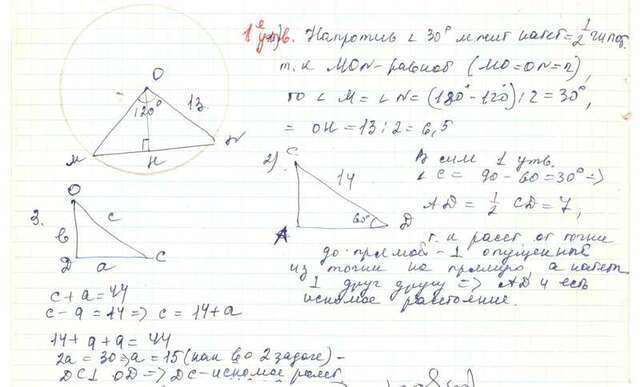 1е утв. Напротив ∠ 30° лежит катет = 1/2 гипот.
т.к MON - равноб (MO=ON=r),
то ∠M = ∠N = (180° - 120°) : 2 = 30°,
= OH = 13 : 2 = 6,5
O
120°
13
M
H
N
2).
C
14
60°
A
D
В сил 1 утв.
∠C = 90 - 60 = 30° =>
AD = 1/2 CD = 7,
т.к расст от точки
до прямой - ⊥ опущенный
из точки на прямую, а катеты
⊥ друг другу => AD и есть
искомое расстояние.
3.
O
в
c
D
a
C
c + a = 44
c - a = 14 => c = 14 + a
14 + a + a = 44
2a = 30 => a = 15 (как во 2 задаче) -
DC ⊥ OD => DC - искомое расст